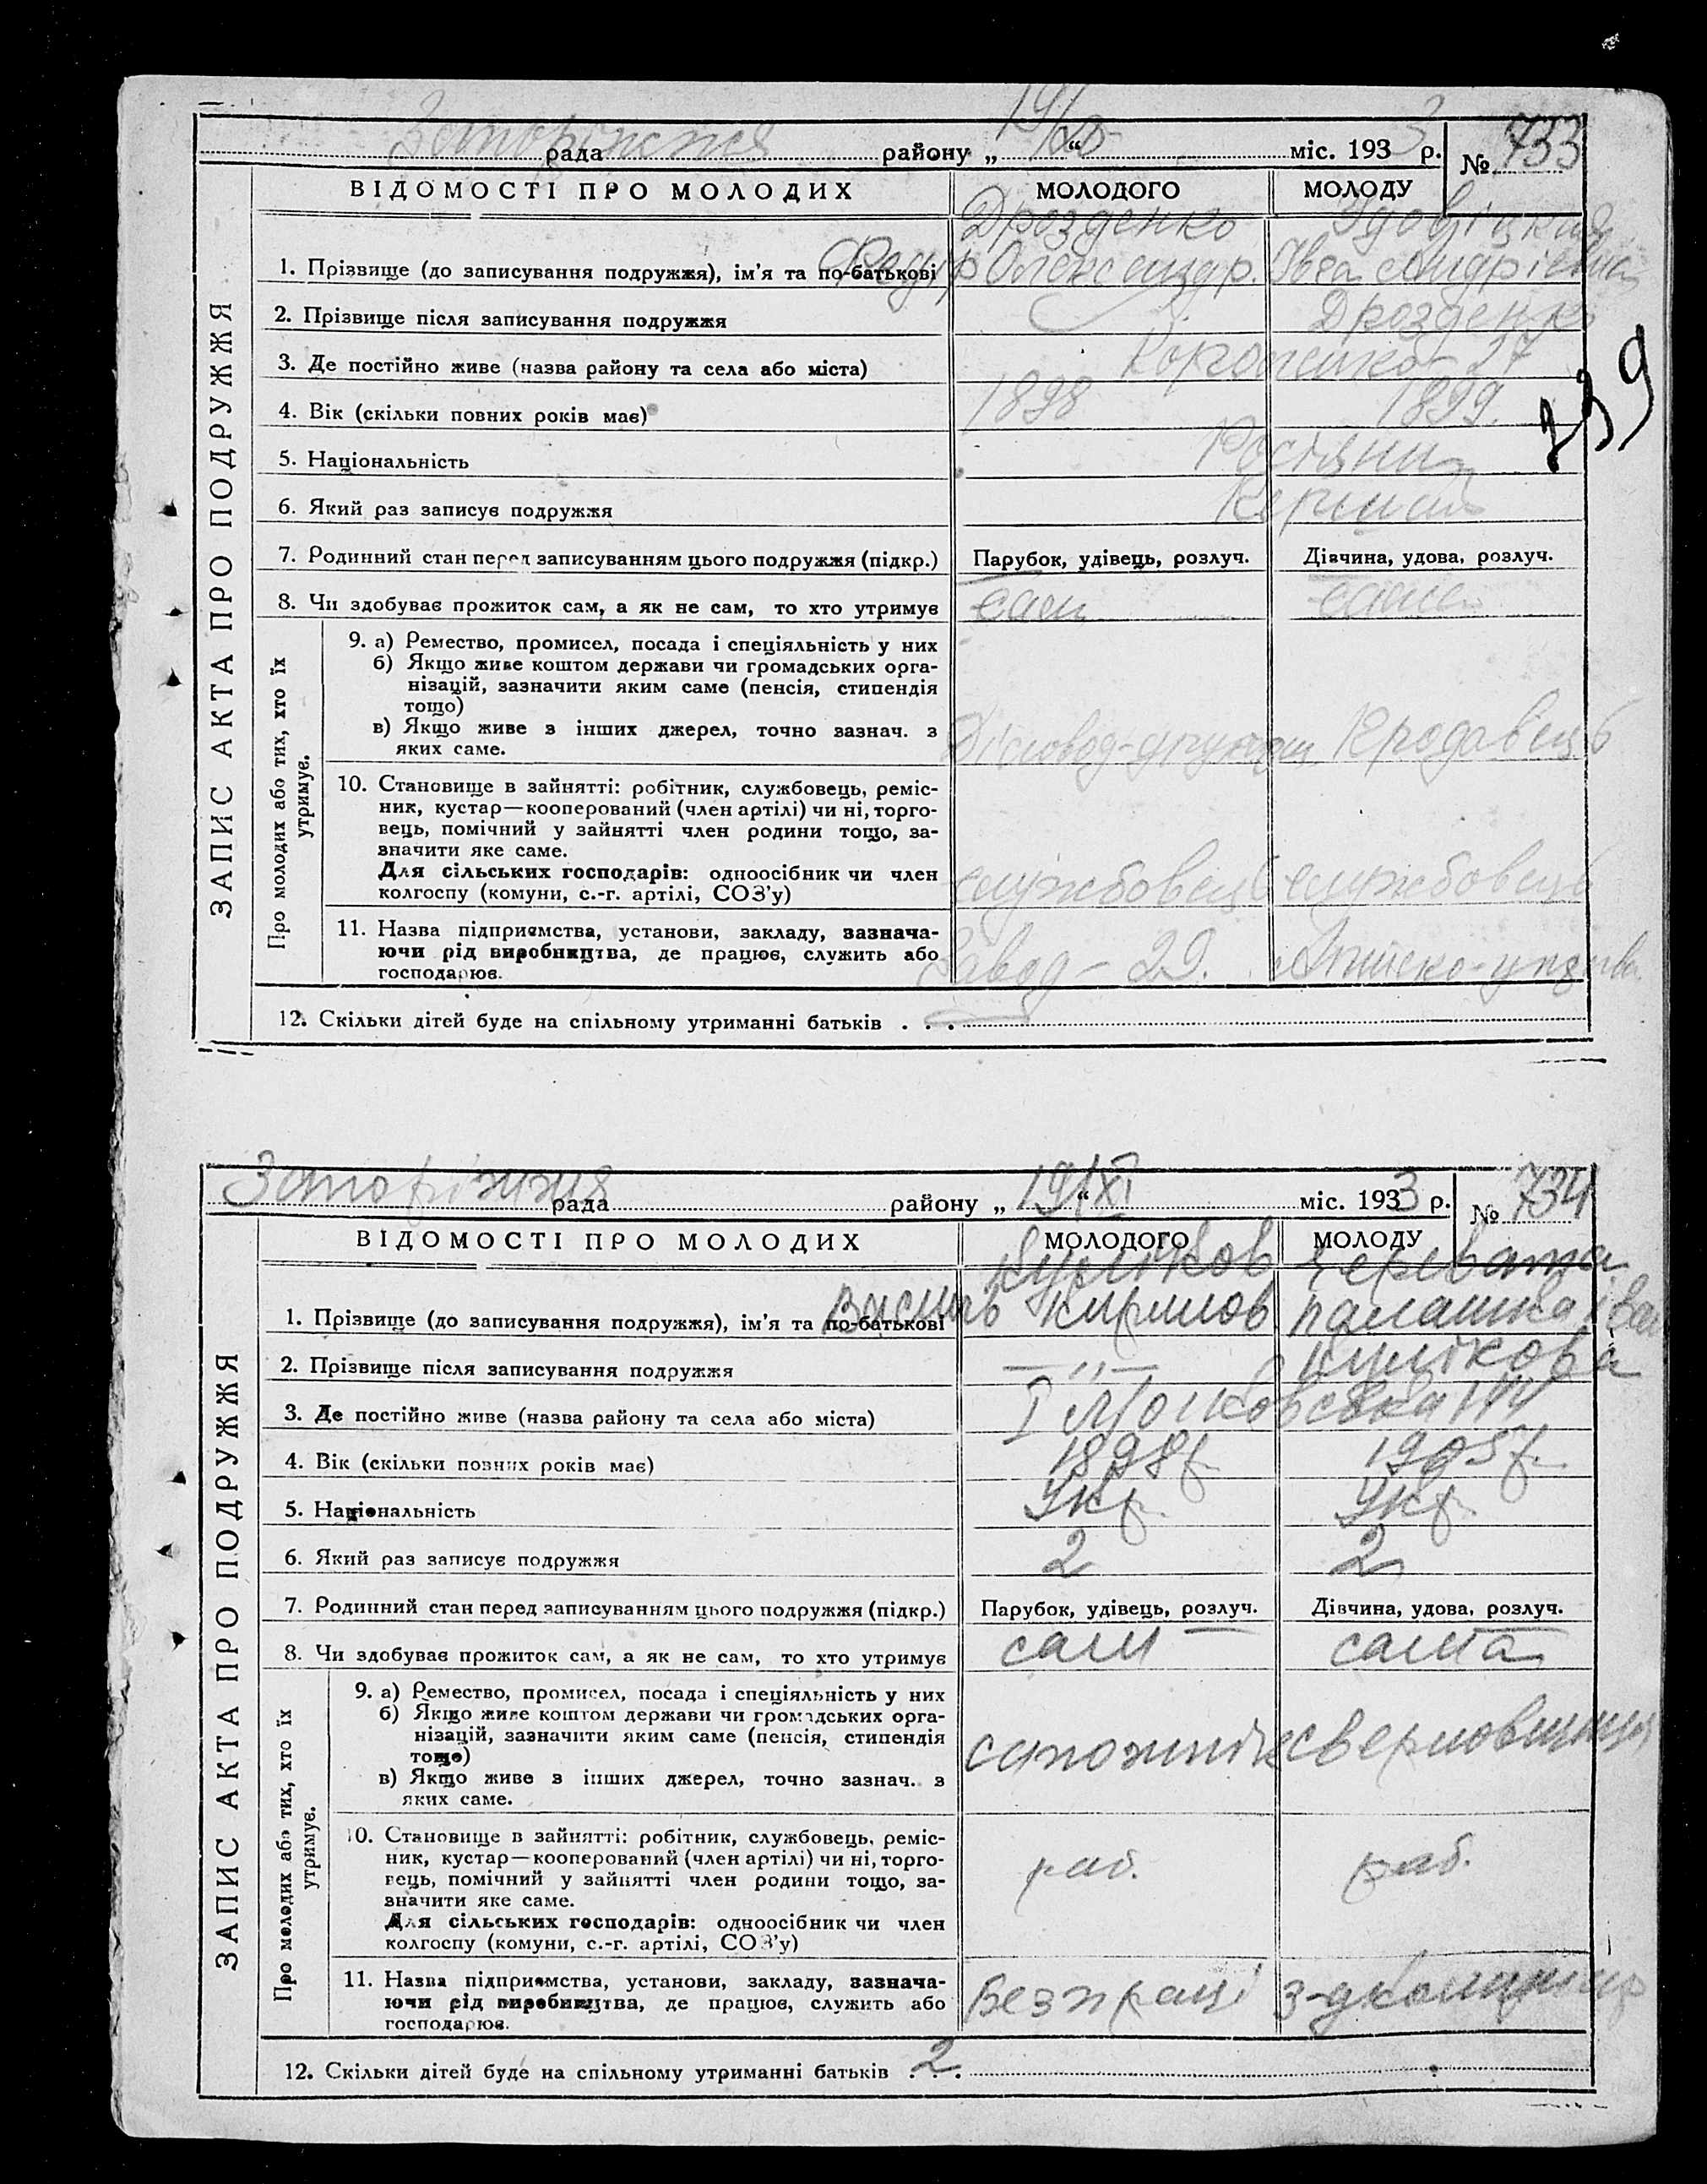 Запоріжжя рада району „ 19/ “ міс. 1933 р. № 733
ВІДОМОСТІ ПРО МОЛОДИХ МОЛОДОГО МОЛОДУ
Дрозденко
1. Прізвище (до записування подружжя), ім'я та по-батькові Федір Олександр. Андріївна
2. Прізвище після записування подружжя Дрозденко
3. Де постійно живе (назва району та села або міста) 27
4. Вік (скільки повних років має) 1898 1899.
5. Національність Росіяни
6. Який раз записує подружжя
7. Родинний стан перед записуванням цього подружжя (підкр.) Парубок, удівець, розлуч. Дівчина, удова, розлуч.
8. Чи здобуває прожиток сам, а як не сам, то хто утримує сам сама
9. а) Ремество, промисел, посада і спеціяльність у них
б) Якщо живе коштом держави чи громадських орга-
нізацій, зазначити яким саме (пенсія, стипендія
тощо)
в) Якщо живе з інших джерел, точно зазнач. з
яких саме. Продавець
10. Становище в зайнятті: робітник, службовець, реміс-
ник, кустар—кооперований (член артілі) чи ні, торго-
вець, помічний у зайнятті член родини тощо, за-
значити яке саме.
Для сільських господарів: одноосібник чи член
колгоспу (комуни, с.-г. артілі, СОЗ'у) службовець службовець
11. Назва підприємства, установи, закладу, зазнача-
ючи рід виробництва, де працює, служить або
господарює. Завод – 29.
12. Скільки дітей буде на спільному утриманні батьків . . .
ЗАПИС АКТА ПРО ПОДРУЖЖЯ
Про молодих або тих, хто їх
утримує.
239
Запоріжжя рада району „ 19/XI “ міс. 1933 р. № 734
ВІДОМОСТІ ПРО МОЛОДИХ МОЛОДОГО МОЛОДУ
Куліков Червата
1. Прізвище (до записування подружжя), ім'я та по-батькові Василь Кирилов палашка Іван
2. Прізвище після записування подружжя — „ — Кулікова
3. Де постійно живе (назва району та села або міста)
4. Вік (скільки повних років має) 1898р. 1905р.
5. Національність Укр. Укр.
6. Який раз записує подружжя 2 2
7. Родинний стан перед записуванням цього подружжя (підкр.) Парубок, удівець, розлуч. Дівчина, удова, розлуч.
8. Чи здобуває прожиток сам, а як не сам, то хто утримує сам сама
9. а) Ремество, промисел, посада і спеціяльність у них
б) Якщо живе коштом держави чи громадських орга-
нізацій, зазначити яким саме (пенсія, стипендія
тощо)
в) Якщо живе з інших джерел, точно зазнач. з
яких саме. сапожнік сверловщиця
10. Становище в зайнятті: робітник, службовець, реміс-
ник, кустар—кооперований (член артілі) чи ні, торго-
вець, помічний у зайнятті член родини тощо, за-
значити яке саме. раб. раб.
Для сільських господарів: одноосібник чи член
колгоспу (комуни, с.-г. артілі, СОЗ'у)
11. Назва підприємства, установи, закладу, зазнача-
ючи рід виробництва, де працює, служить або
господарює. Без праці з-д
12. Скільки дітей буде на спільному утриманні батьків . 2 .
ЗАПИС АКТА ПРО ПОДРУЖЖЯ
Про молодих або тих, хто їх
утримує.